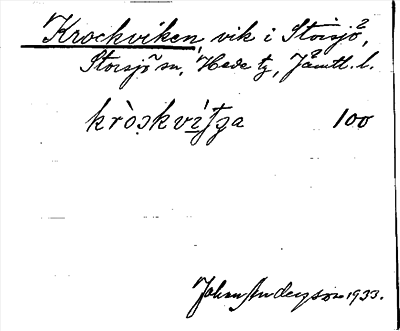 Krockviken, vik i Storsjö,
Storsjö sn, Hede tg, Jämtl. l.
kròskvìtʃa 100
Johan Anderson 1933.